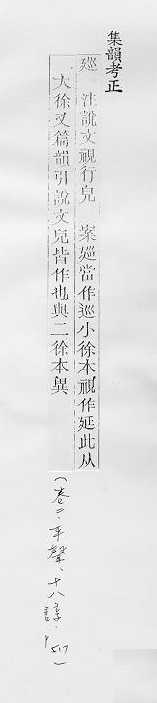 集韻考正
𨒰 注說文視行皃 案𨒰當作巡小徐本視作延此从
大徐又篇韻引說文皃皆作也與二徐本異
(卷二、平聲、十八諄、P517)